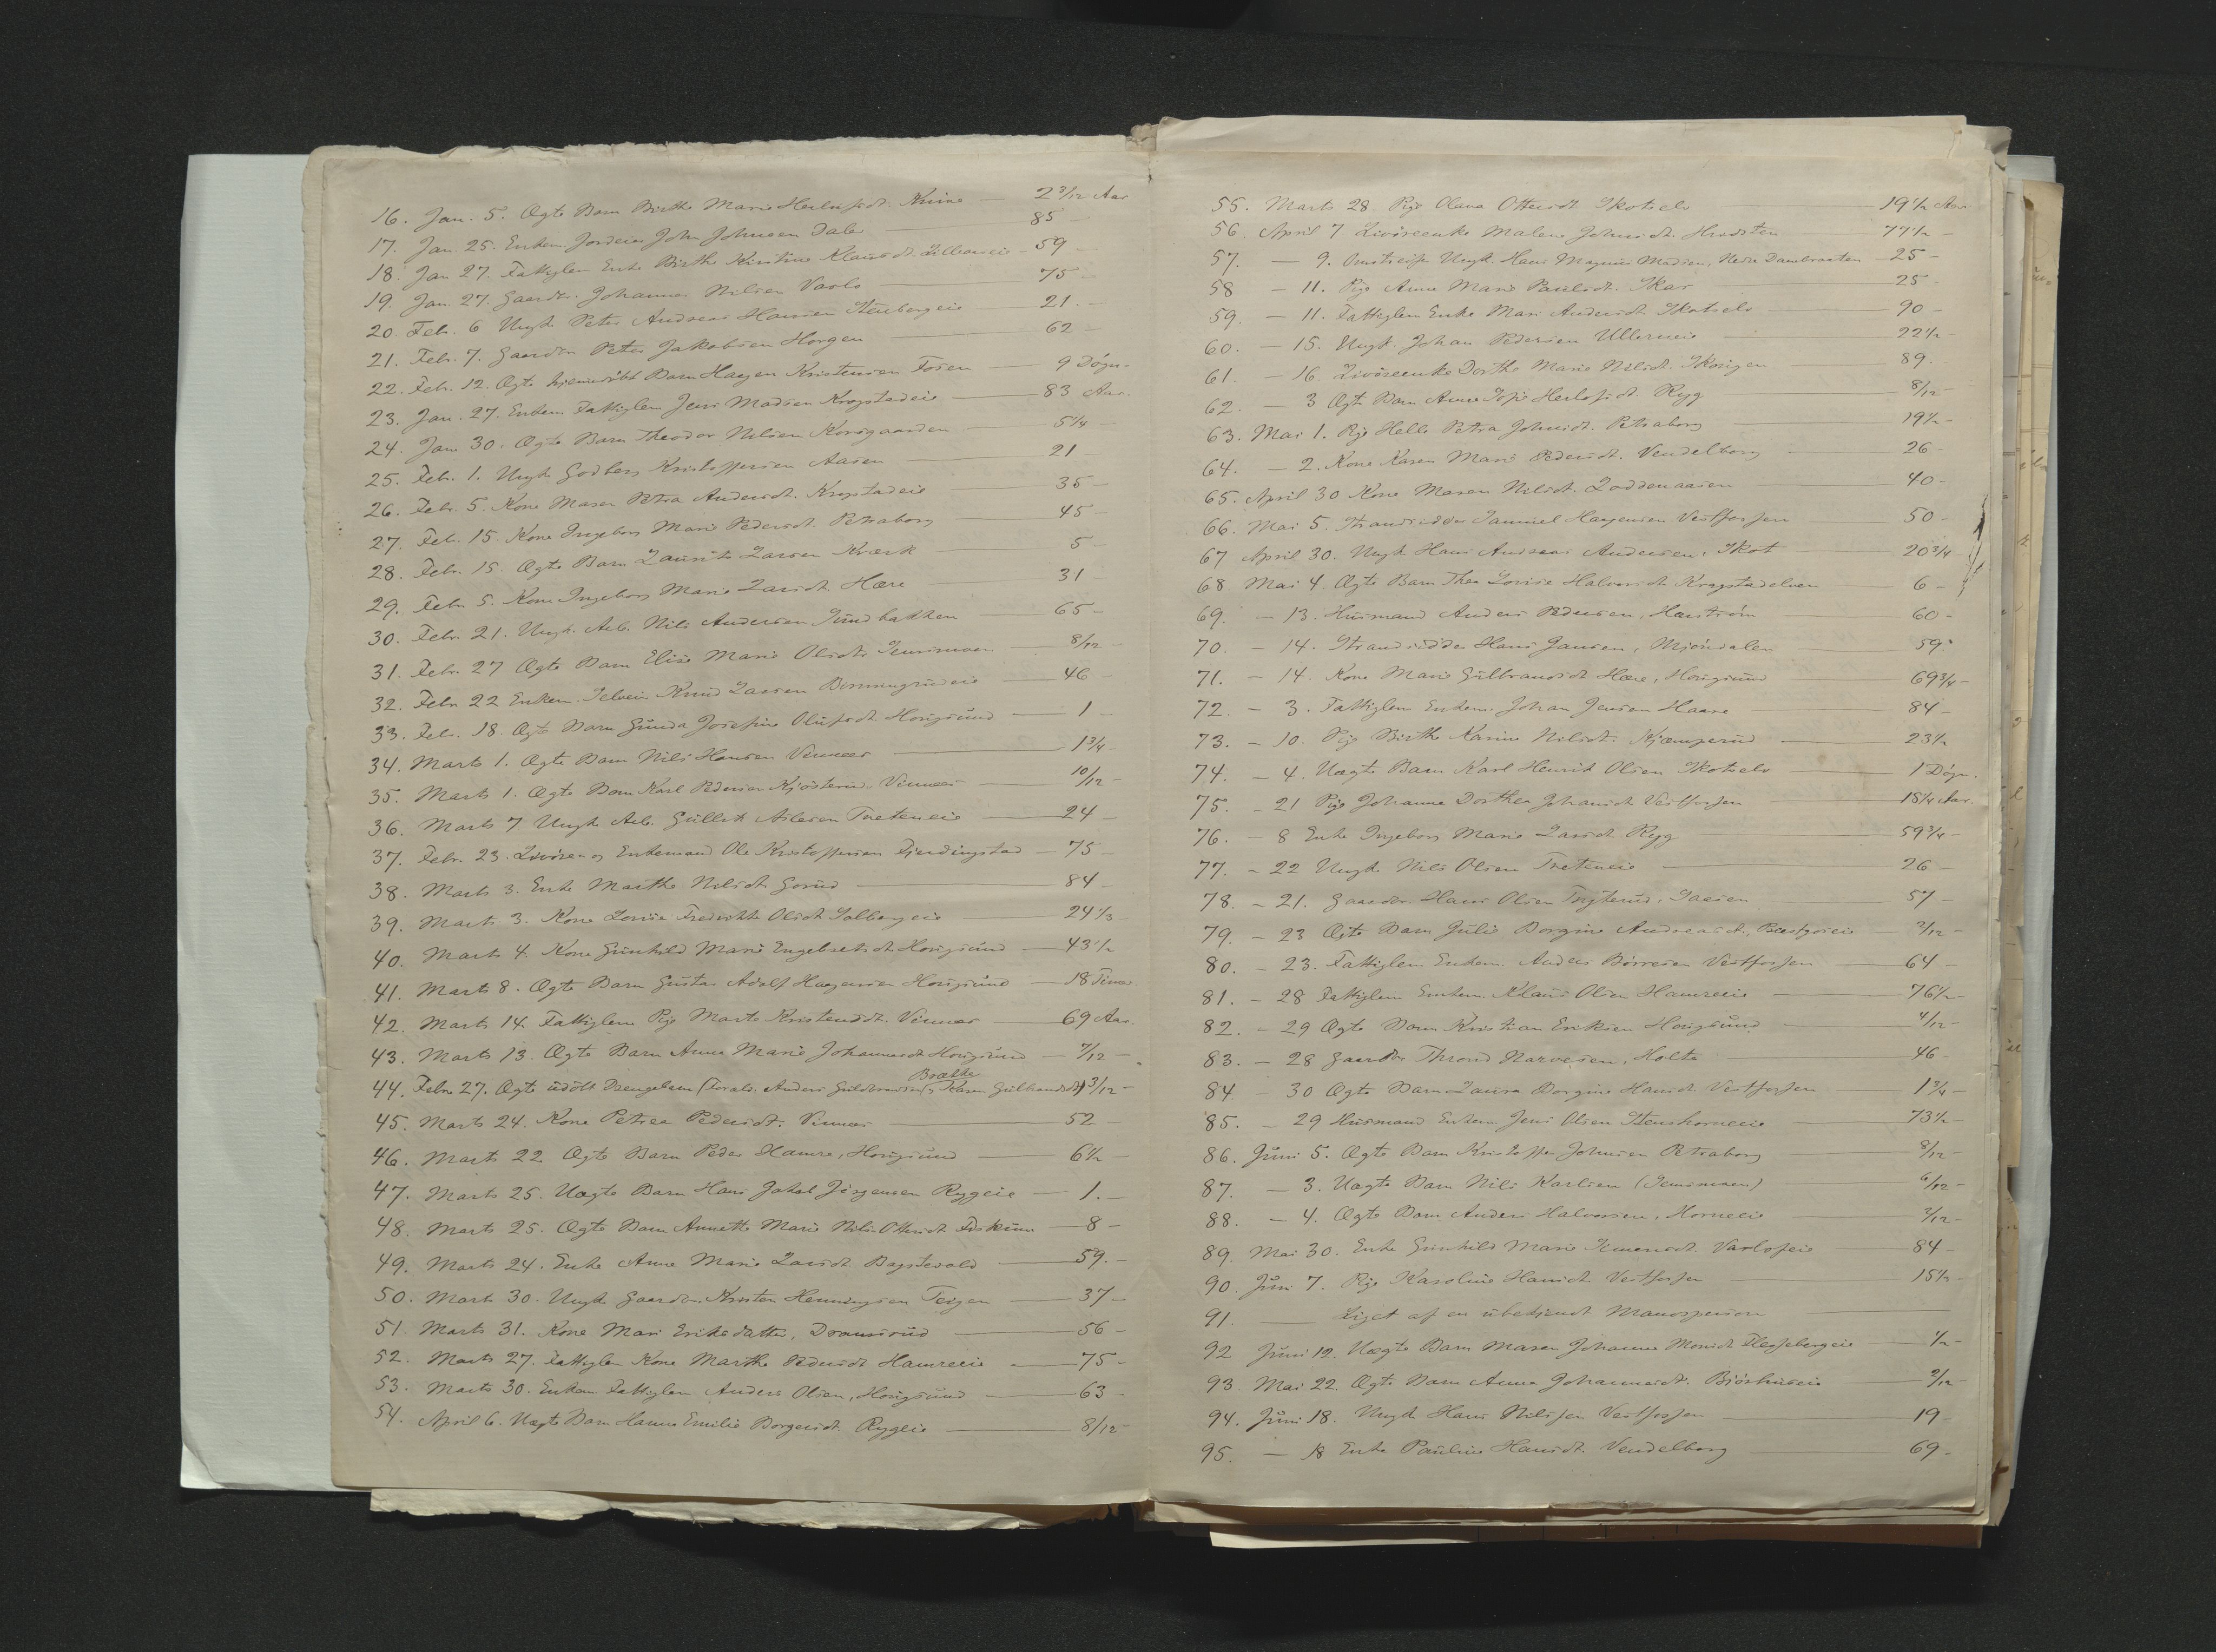 16. Jan. 5. Ægte Barn Birthe Marie Herlufsdt. Knive — 2 3/12 Aar
17. Jan. 25. Enkem. Jordeier John Johnsen Daler — 85 -
18. Jan 27. Fattiglem Enke Birthe Kirstine Klausdt. — 59
19. Jan. 27. Gaardbr. Johannes Nilsen Varlo — 75 -
20. Feb. 6 Ungk. Peter Andreas Hansen Stenbergeie — 21. -
21. Febr. 7. Gaardbr. Peter Jakobsen Horgen — 62 -
22. Feb. 12. Ægte hjemmedöbt Barn Haagen Kristensen Fosen — 9 Dögn.
23. Jan. 27. Enkem. Fattiglem Jens Madsen Krogstadeie — 83 Aar.
24. Jan 30. Ægte Barn Theodor Nilsen Korsgaarden — 5 1/4
25. Feb. 1. Ungk. Godberg Kristoffersen Aasen — 21
26. Feb. 5. Kone Maren Petra Andersdt. Krogstadeie — 35 -
27. Feb. 15. Kone Ingeborg Marie Pedersdt. Petraborg — 45 -
28. Febr. 15. Ægte Barn Laurits Larsen Krærk — 5 -
29. Febr. 5. Kone Ingeborg Marie Larsdt. Hære — 31
30. Febr. 21. Ungk. Arb. Nils Andersen Sundbakken — 65 -
31. Febr. 27 Ægte Barn Elise Marie Olsdt. — 8/12 -
32. Febr 22 Enkem. Selveier Knud Larsen — 46 -
33. Feb. 18. Ægte Barn Gunda Josefine Olufsdt. Hougsund — 1 -
34. Marts 1. Ægte Barn Nils Hansen Vinnees — 1 3/4 -
35. Marts 1. Ægte Barn Karl Pedersen Kjösterud, Vinnees — 10/12 -
36. Marts 7 Ungk. Arb. Gullik Aslesen Treteneie — 24 -
37. Febr. 23. Livöre- og Enkemand Ole Kristoffersen Fjerdingstad — 75 -
38. Marts 3. Enke Marthe Nilsdt. Gorud — 84
39. Marts 3. Kone Lovise Fredrikke Olsdt. Solbergeie — 24 1/3
40. Marts 4. Kone Gunhild Marie Engebretsdt. Hougsund — 43 1/2
41. Marts 8. Ægte Barn Gustav Adolf Haagensen Hougsund — 18 Timer
42. Marts 14. Fattiglem Pige Marte Kristensdt. Vinnees — 69 Aar.
43. Marts 13. Ægte Barn Anna Marie Johannesdt. Hougsund — 7/12 -
44. Febr. 27. Ægte udöbt Drengebarn (Foræld. Anders Guldbrandsen Brække og Karen Gulbrandsdt.) 3/12 -
45. Marts 24. Kone Petrea Pedersdt. Vinnees — 52 -
46. Marts 22. Ægte Barn Peder Hamre, Hougsund — 6 1/2 -
47. Marts 25. Uægte Barn Hans Jakob Jörgensen Ryggeie — 1. -
48. Marts 25. Ægte Barn Annette Marie Nils-Ottersdt. Fiskum — 8 -
49. Marts 24. Enke Anne Marie Larsdt. Bagstevold — 59. -
50. Marts 30. Ungk. Gaardbr. Kristen Henningsen Teigen — 37 -
51. Marts 31. Kone Mari Eriksdatter, Dramsrud — 56 -
52. Marts 27. Fattiglem Kone Marthe Pedersdt. Hamreeie — 75 -
53. Marts 30. Enkem. Fattiglem Anders Olsen, Hougsund — 63 -
54. April 6. Uægte Barn Hanna Emilie Borgersdt. Ryggeie — 8/12 -
55. Marts 28. Pige Olava Ottersdt. Skotselv — 19 1/2 Aar
56. April 7 Livöreenke Malene Johnsdt. — 77 1/2 -
57. — 9. Ungk. Hans Magnus Madsen, Nedre Dambraaten — 25 -
58 - 11. Pige Anne Marie Paulsdt. Skar — 25 -
59. - 11. Fattiglem Enke Mari Andersdt. Skotselv — 90 -
60. - 15. Ungk. Johan Pedersen Ullerneie — 22 1/2
61. - 16. Livöreenke Dorthe Marie Nilsdt. — 89.
62. - 3 Ægte Barn Anne Sofie Herlofsdt. Ryg — 8/12
63. Mai 1. Pige Helle Petra Johnsdt. Petraborg — 19 1/2 -
64. - 2. Kone Karen Marie Pedersdt. Vendelborg — 26 -
65. April 30 Kone Maren Nilsdt. Loddenaasen — 40 -
66. Mai 5. Strandsidder Samuel Haagensen Vestfossen — 50 -
67 April 30. Ungk. Hans Andreas Andersen, Skot — 20 3/4
68 Mai 4 Ægte Barn Thea Lovise Halvorsdt. Krogstadelven — 6 -
69. - 13. Husmand Anders Pedersen, Haaström — 60 -
70. - 14. Strandsidder Hans Jansen, Mjöndalen — 59.
71. - 14. Kone Marie Gulbrandsdt. Hære, Hougsund — 69 3/4 -
72. - 3. Fattiglem Enkem. Johan Jensen Haare — 84 -
73. - 10. Pige Birthe Karine Nilsdt. Kjæmperud — 23 1/2
74. - 4. Uægte Barn Karl Henrik Olsen Skotselv — 1 Dögn.
75. - 21 Pige Johanne Dorthea Johansdt. Vestfossen — 15 1/4 Aar.
76. - 8 Enke Ingeborg Marie Larsdt. Ryg — 59 3/4 -
77. - 22 Ungk. Nils Olsen Treteneie — 26 -
78. - 21. Gaardbr. Hans Olsen Trÿterud — 57 -
79. - 23 Ægte Barn Julie Borgine Andreasdt. — 3/12 -
80. - 23. Fattiglem Enkem. Anders Börresen Vestfossen — 64 -
81. - 28 Fattiglem Enkem. Klaus Olsen Hamreeie — 76 1/2 -
82. - 29 Ægte Barn Kristian Eriksen Hougsund — 4/12 -
83. - 28 Gaardbr. Thrond Narvesen, Holte — 46 -
84. - 30 Ægte Barn Laura Borgine Hansdt. Vestfossen — 1 3/4 -
85. - 29 Husmand Enkem. Jens Olsen Stenshorneeie — 73 1/2 -
86. Juni 5. Ægte Barn Kristoffer Johnsen Petraborg — 8/12 -
87. - 3. Uægte Barn Nils Karlsen — 6/12 -
88. - 4. Ægte Barn Anders Halvorsen, Horneeie — 3/12 -
89. Mai 30. Enke Gunhild Marie Simensdt. Varloseie — 84 -
90. Juni 7. Pige Karoline Hansdt. Vestfossen — 15 1/2 -
91. — Liget af en ubekjendt Mandsperson —
92 Juni 12. Uægte Barn Maren Johanne Monsdt. Flesebergeie — 1/2 -
93 Mai 22. Ægte Barn Anna Johannesdt. Bjöshuseie — 2/12 -
94. Juni 18. Ungk. Hans Nilssen Vestfossen — 19 -
95. - 18 Enke Pauline Hansdt. Vendelborg — 69 -